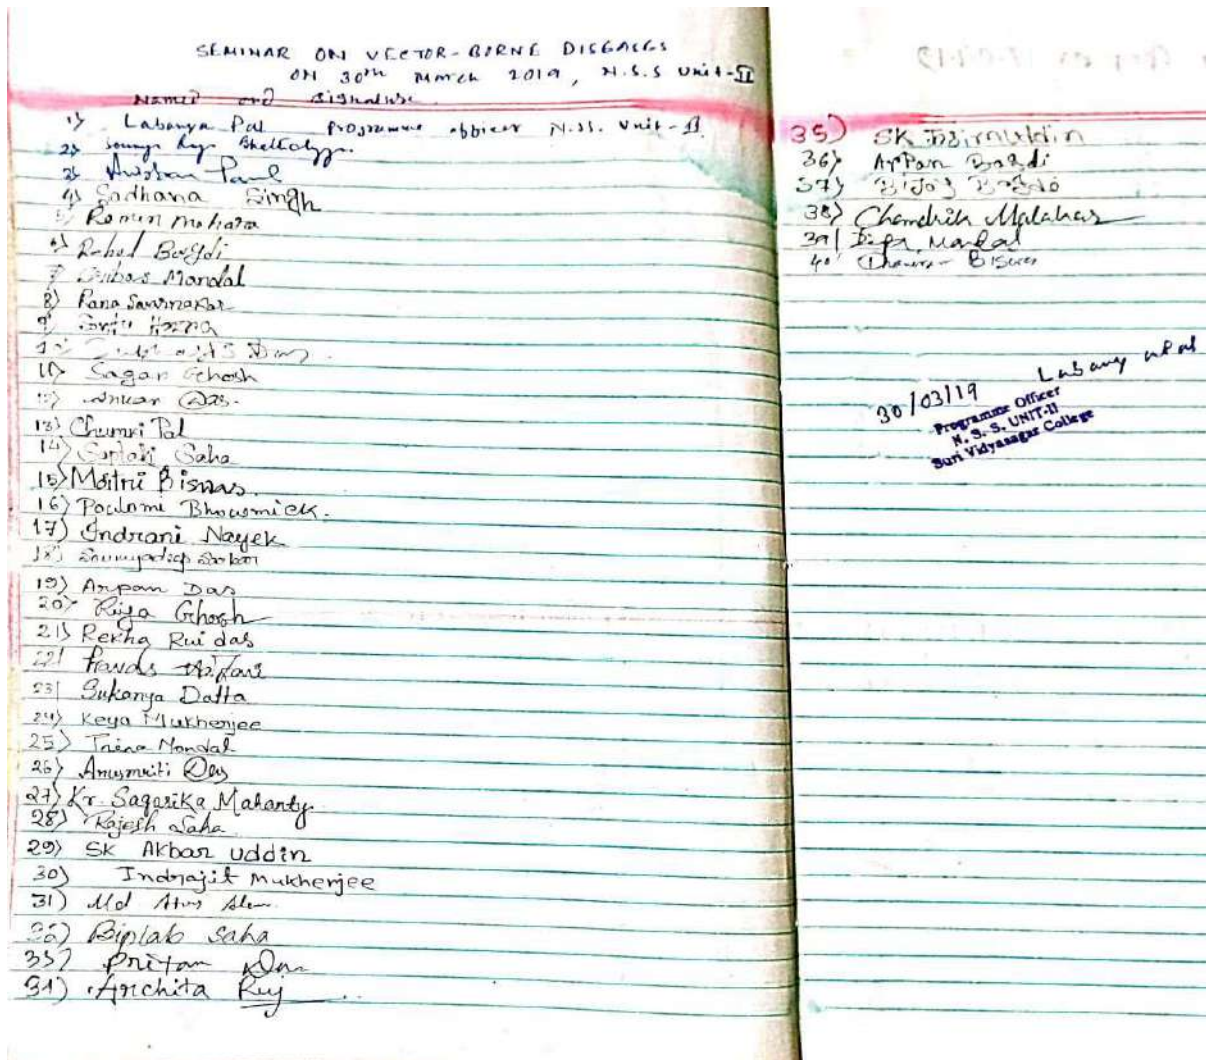 SEMINAR ON VECTOR-BORNE DISEASES
ON 30th March 2019, N.S.S Unit-II
Names and Signature
1) Labanya Pal Programme officer N.SS. Unit-II
2)
3) Paul
4) Sadhana Singh
5) Romin Mahara
6) Rahul Bagdi
7) Mondal
8) Rana Swarnakar
9) Hazra
10)
11) Sagar Ghosh
12) Ankan Das
13) Chumki Pal
14) Saptaki Saha
15) Moitri Biswas
16) Poulomi Bhowmick.
17) Indrani Nayek
18) Soumyadip
19) Arpan Das
20) Riya Ghosh
21) Rekha Rui das
22)
23) Sukanya Datta
24) Keya Mukherjee
25) Trina Mondal
26) Anusmriti Dey
27) Kr. Sagarika Mahanty
28) Rajesh Saha
29) SK Akbar uddin
30) Indrajit Mukherjee
31) Md
32) Biplab Saha
33) Pritam
34) Archita Ruj
35) SK
36) Arpan Bagdi
37)
38) Chandrik Malakar
39) Mandal
40) Biswas
Labanya Pal
30/03/19
Programme Officer
N. S. S. UNIT-II
Suri Vidyasagar College